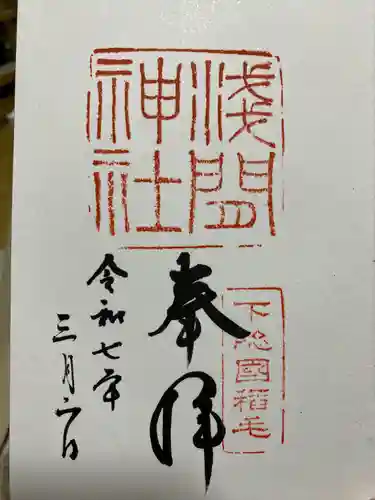 浅間
神社
下総國稲毛
奉拝
令和七年
三月六日